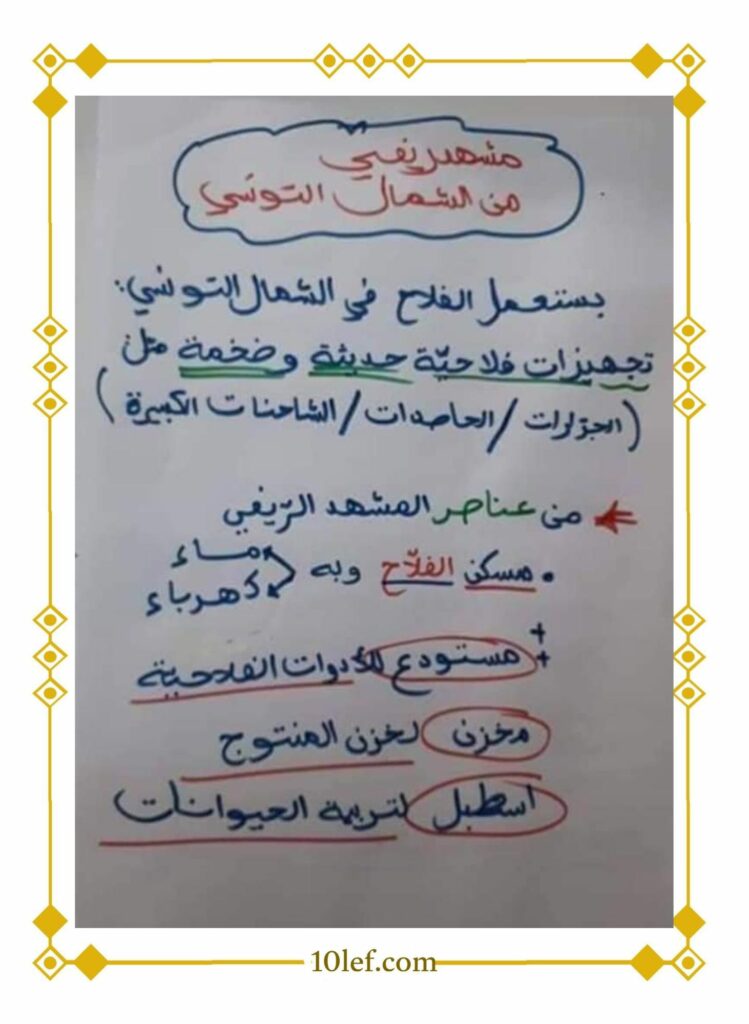 مشهد ريفي
من الشمال التونسي
يستعمل الفلاح في الشمال التونسي:
تجهيزات فلاحيّة حديثة وضخمة مثل
(الجرّارات / الحاصدات / الشاحنات الكبيرة)
من عناصر المشهد الرّيفي
• مسكن الفلّاح وبه ماء
كهرباء
+ + مستودع للأدوات الفلاحية
مخزن لخزن المنتوج
اسطبل لتربية الحيوانات
10lef.com